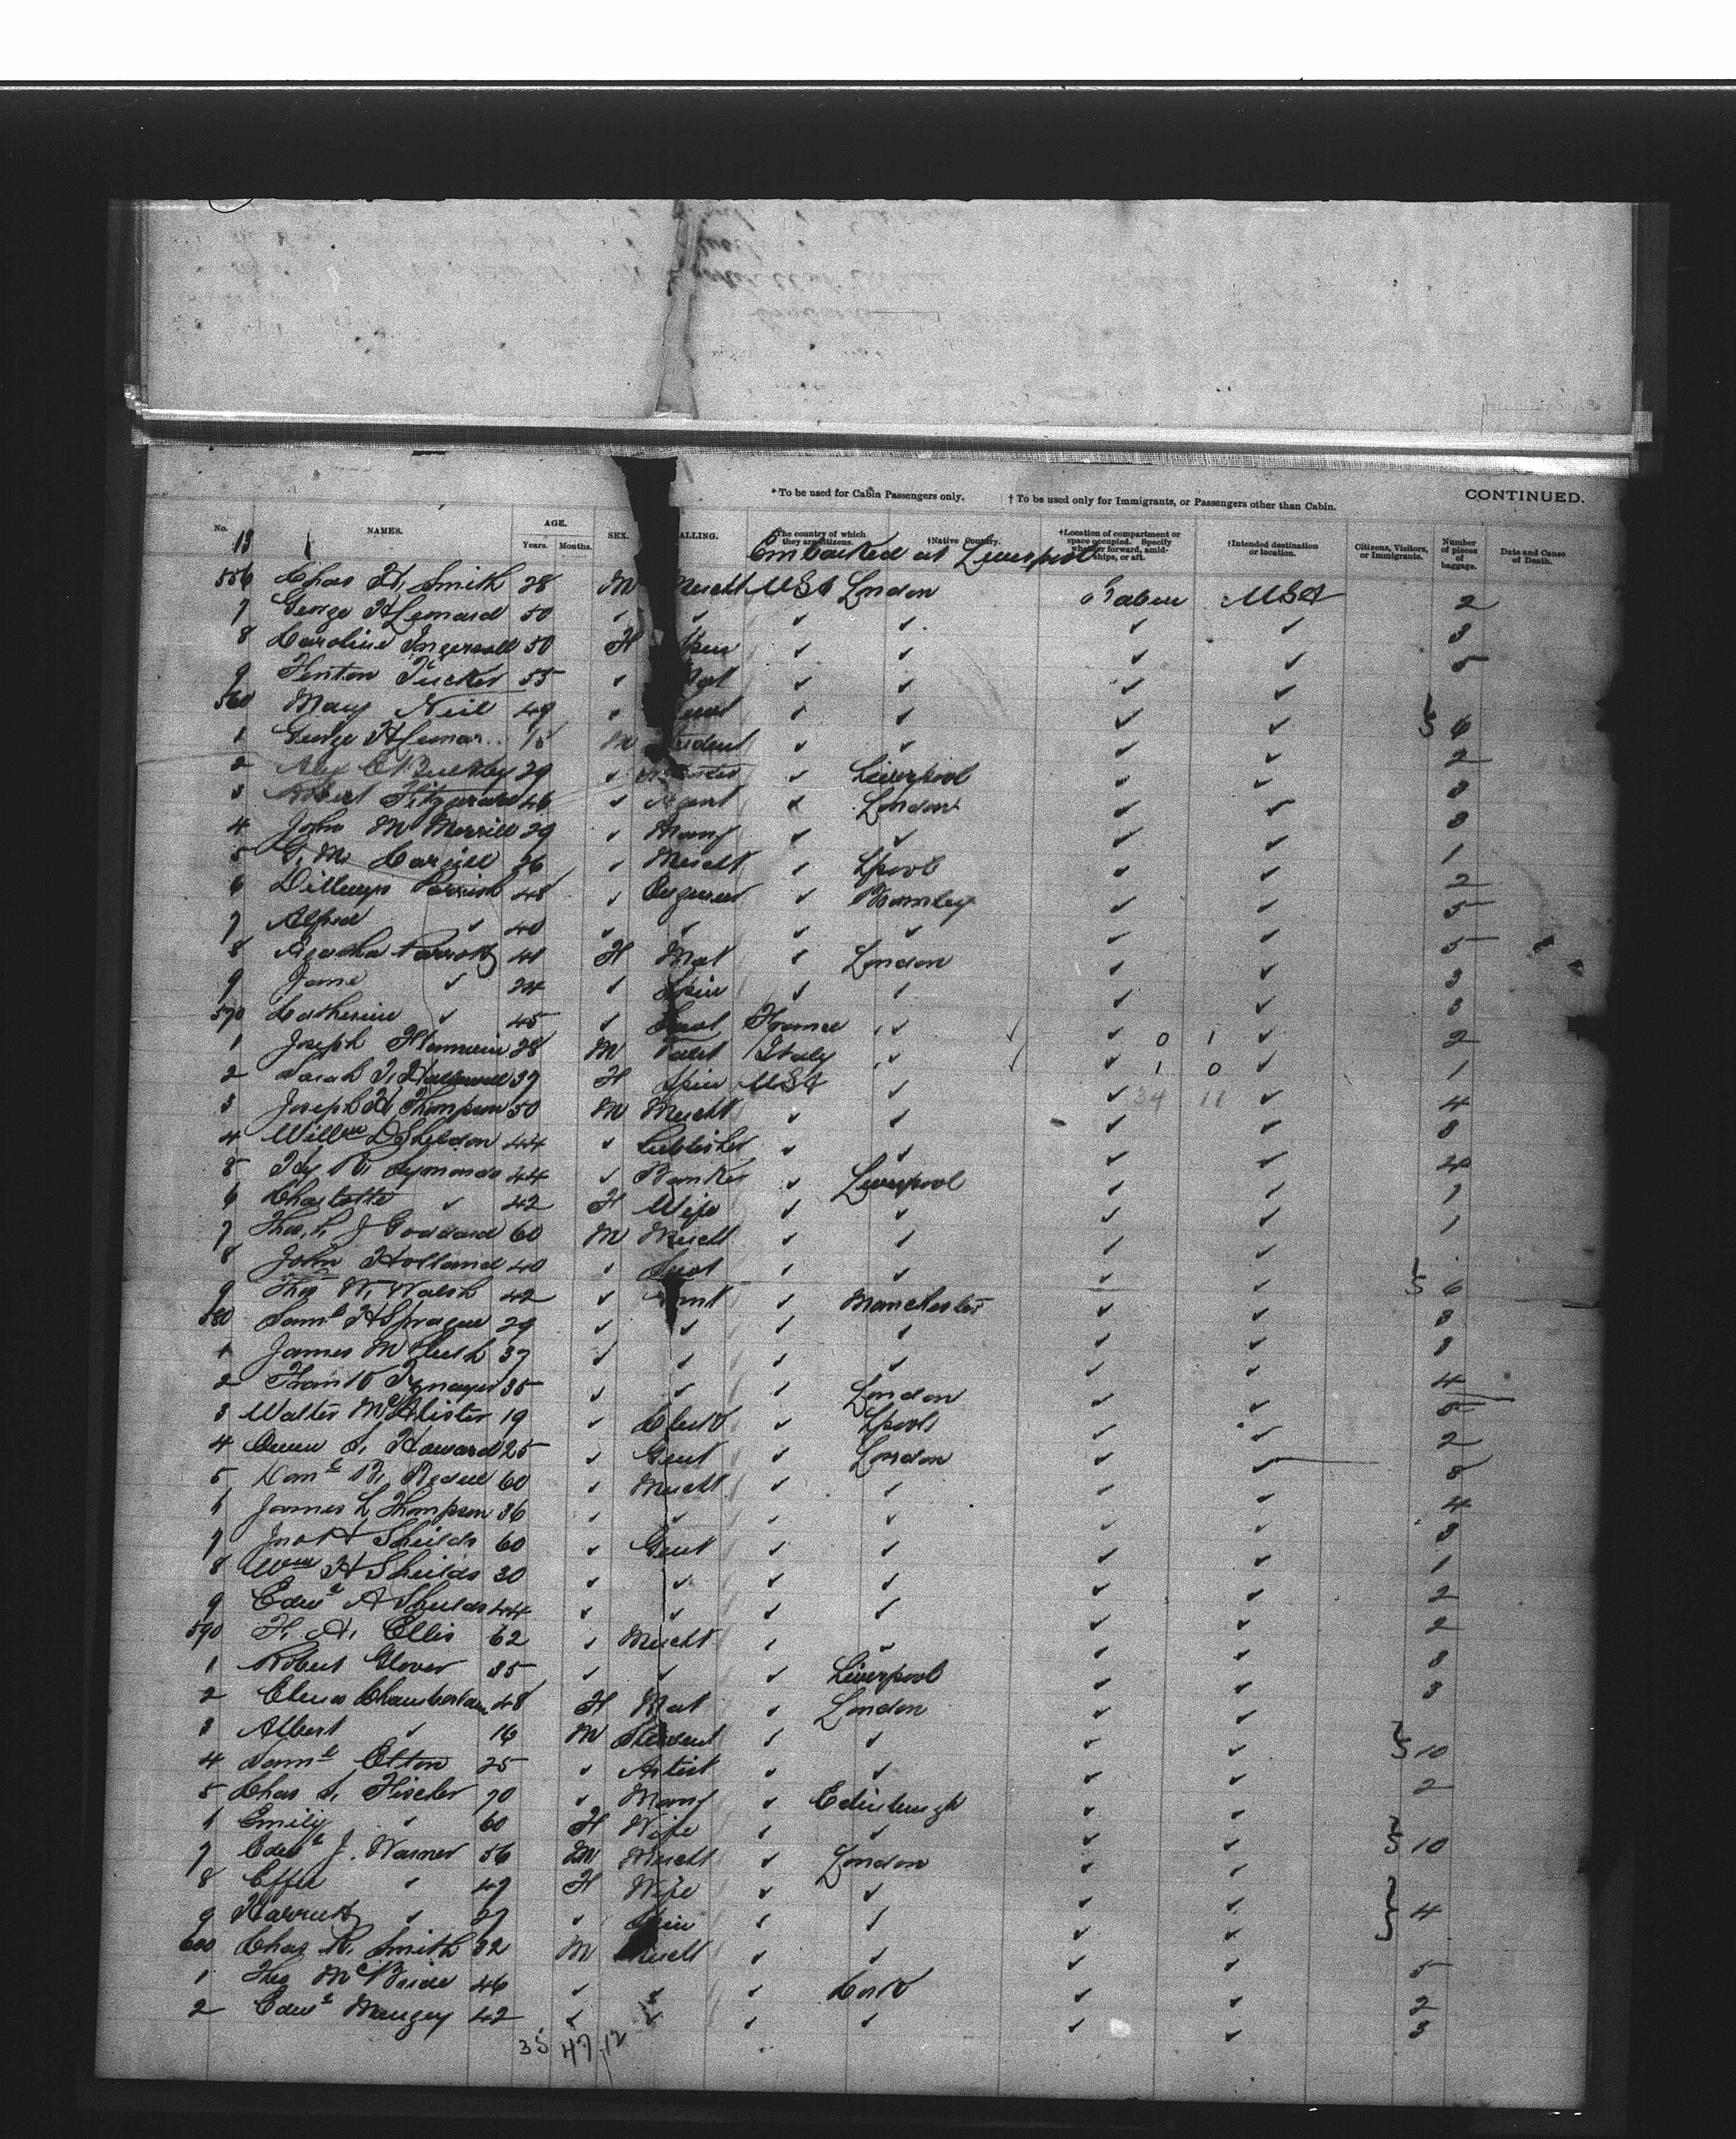 * To be used for Cabin Passengers only. † To be used only for Immigrants, or Passengers other than Cabin. CONTINUED.
No. NAMES. AGE. Years. Months. SEX. ALLING. *The country of which they are citizens. †Native Country. †Location of compartment or space occupied. Specify whether forward, amidships, or aft. †Intended destination or location. Citizens, Visitors, or Immigrants. Number of pieces of baggage. Date and Cause of Death.
13 Embarked at Liverpool
556 Chas H. Smith 28 M Mercht USA London USA 2
7 George H Lemard 50 ✓ ✓ ✓ ✓ ✓ ✓ 3
8 Caroline Ingersoll 50 F Spin ✓ ✓ ✓ ✓ 5
9 Fenton Tucker 55 ✓ Mat ✓ ✓ ✓ ✓
560 Mary Neil 49 ✓ ✓ ✓ ✓ ✓ 6
1 George H 15 M tudent ✓ ✓ ✓ ✓ 2
2 Alex C Bulkley 29 ✓ ✓ Liverpool ✓ ✓ 3
3 Robert Fitzgerald 46 ✓ Agent ✓ London ✓ ✓ 3
4 John M Merrill 29 ✓ Manf ✓ ✓ ✓ ✓ 1
5 G. M. Cargill 36 ✓ Mercht ✓ Lpool ✓ ✓ 2
6 Dillwyn Parrish 48 ✓ Engineer ✓ ✓ ✓ 5
7 Alfred ✓ 40 ✓ ✓ ✓ ✓ ✓ ✓ 5
8 Agatha Parrott 41 F Mat ✓ London ✓ ✓ 3
9 Jane ✓ 24 ✓ Spin ✓ ✓ ✓ ✓ 3
570 Catherine ✓ 45 ✓ France ✓ ✓ 0 1 ✓ 2
1 Joseph 28 M Valet Italy ✓ ✓ 1 0 ✓ 1
2 Sarah T. Hallowell 37 F Spin USA ✓ ✓ 34 11 ✓ 4
3 Joseph H. Thompson 50 M Mercht ✓ ✓ ✓ ✓ 8
4 Willm D Sheldon 44 ✓ Publisher ✓ ✓ ✓ ✓ 4
5 Hy R. Symonds 44 ✓ Banker ✓ Liverpool ✓ ✓ 1
6 Charlotte ✓ 42 F Wife ✓ ✓ ✓ ✓ 1
7 Thos. J Goddard 60 M Mercht ✓ ✓ ✓ ✓
8 John Holland 40 ✓ ✓ ✓ ✓ ✓ 6
9 Thos W. Walsh 42 ✓ ✓ Manchester ✓ ✓ 3
580 Saml H Sprague 29 ✓ ✓ ✓ ✓ ✓ ✓ 3
1 James M 37 ✓ ✓ ✓ ✓ ✓ ✓ 4
2 Frank 35 ✓ ✓ ✓ London ✓ ✓ 5
3 Walter McAlister 19 ✓ Clerk ✓ Lpool ✓ ✓ 2
4 Owen S. Howard 25 ✓ Gent ✓ London ✓ ✓ 8
5 R. 60 ✓ Mercht ✓ ✓ ✓ ✓ 4
6 James L Thompson 36 ✓ ✓ ✓ ✓ ✓ ✓ 3
7 Jno H Sheilds 60 ✓ Gent ✓ ✓ ✓ ✓ 1
8 Wm H Sheilds 30 ✓ ✓ ✓ ✓ ✓ ✓ 2
9 Edwd A Sheilds 44 ✓ ✓ ✓ ✓ ✓ ✓ 2
590 F. A. Ellis 62 ✓ Mercht ✓ ✓ ✓ ✓ 8
1 Robert Glover 35 ✓ ✓ ✓ Liverpool ✓ ✓ 3
2 Chamberlain 48 F Mat ✓ London ✓ ✓
3 Albert ✓ 16 M Student ✓ ✓ ✓ ✓ 10
4 Saml Elton 25 ✓ Artist ✓ ✓ ✓ ✓ 2
5 Chas S. Fischer 70 ✓ Manf ✓ Edinburgh ✓ ✓
6 Emily ✓ 60 F Wife ✓ ✓ ✓ ✓ 10
7 Edwd J. Warner 56 M Mercht ✓ London ✓ ✓
8 Effie ✓ 47 F Wife ✓ ✓ ✓ ✓ 4
9 Harriett ✓ 27 ✓ Spin ✓ ✓ ✓ ✓
600 Chas R. Smith 32 M Mercht ✓ ✓ ✓ ✓ 5
1 Thos McBride 46 ✓ ✓ ✓ Cork ✓ ✓ 2
2 Edwd 42 ✓ ✓ ✓ ✓ ✓ ✓ 3
35 47 12